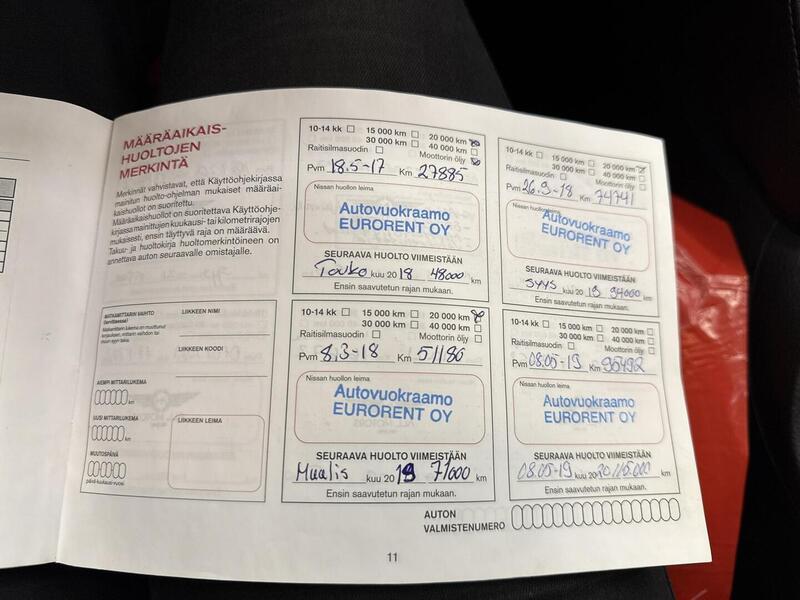 MÄÄRÄAIKAIS-
HUOLTOJEN
MERKINTÄ
Merkinnät vahvistavat, että Käyttöohjekirjassa
mainitun huolto-ohjelman mukaiset määräai-
kaishuollot on suoritettu.
Määräaikaishuollot on suoritettava Käyttöohje-
kirjassa mainittujen kuukausi- tai kilometrirajojen
mukaisesti, ensin täyttyvä raja on määräävä.
Takuu- ja huoltokirja huoltomerkintöineen on
annettava auton seuraavalle omistajalle.
MATKAMITTARIN VAIHTO
(tarvittaessa)
LIIKKEEN NIMI
LIIKKEEN KOODI
AIEMPI MITTARILUKEMA
km
UUSI MITTARILUKEMA
km
MUUTOSPÄIVÄ
päivä-kuukausi-vuosi
LIIKKEEN LEIMA
10-14 kk 15 000 km 20 000 km
30 000 km 40 000 km
Raitisilmasuodin Moottorin öljy
Pvm 18.5-17 Km 27885
Nissan huollon leima
Autovuokraamo
EURORENT OY
SEURAAVA HUOLTO VIIMEISTÄÄN
Touko kuu 2018 48000 km
Ensin saavutetun rajan mukaan.
10-14 kk 15 000 km 20 000 km
30 000 km 40 000 km
Raitisilmasuodin Moottorin öljy
Pvm 26.9-18 Km 74741
Nissan huollon leima
Autovuokraamo
EURORENT OY
SEURAAVA HUOLTO VIIMEISTÄÄN
SYYS kuu 2019 94000 km
Ensin saavutetun rajan mukaan.
10-14 kk 15 000 km 20 000 km
30 000 km 40 000 km
Raitisilmasuodin Moottorin öljy
Pvm 8.3-18 Km 51186
Nissan huollon leima
Autovuokraamo
EURORENT OY
SEURAAVA HUOLTO VIIMEISTÄÄN
Maalis kuu 2019 71000 km
Ensin saavutetun rajan mukaan.
10-14 kk 15 000 km 20 000 km
30 000 km 40 000 km
Raitisilmasuodin Moottorin öljy
Pvm 08.05-19 Km 95492
Nissan huollon leima
Autovuokraamo
EURORENT OY
SEURAAVA HUOLTO VIIMEISTÄÄN
08.05-19 kuu 2020 115.000 km
Ensin saavutetun rajan mukaan.
AUTON
VALMISTENUMERO
11